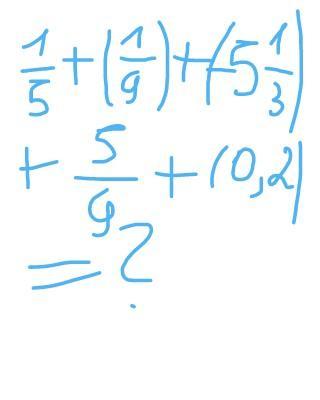 1/5 + (1/9) + (-5 1/3)
+ 5/9 + (0,2)
= ?